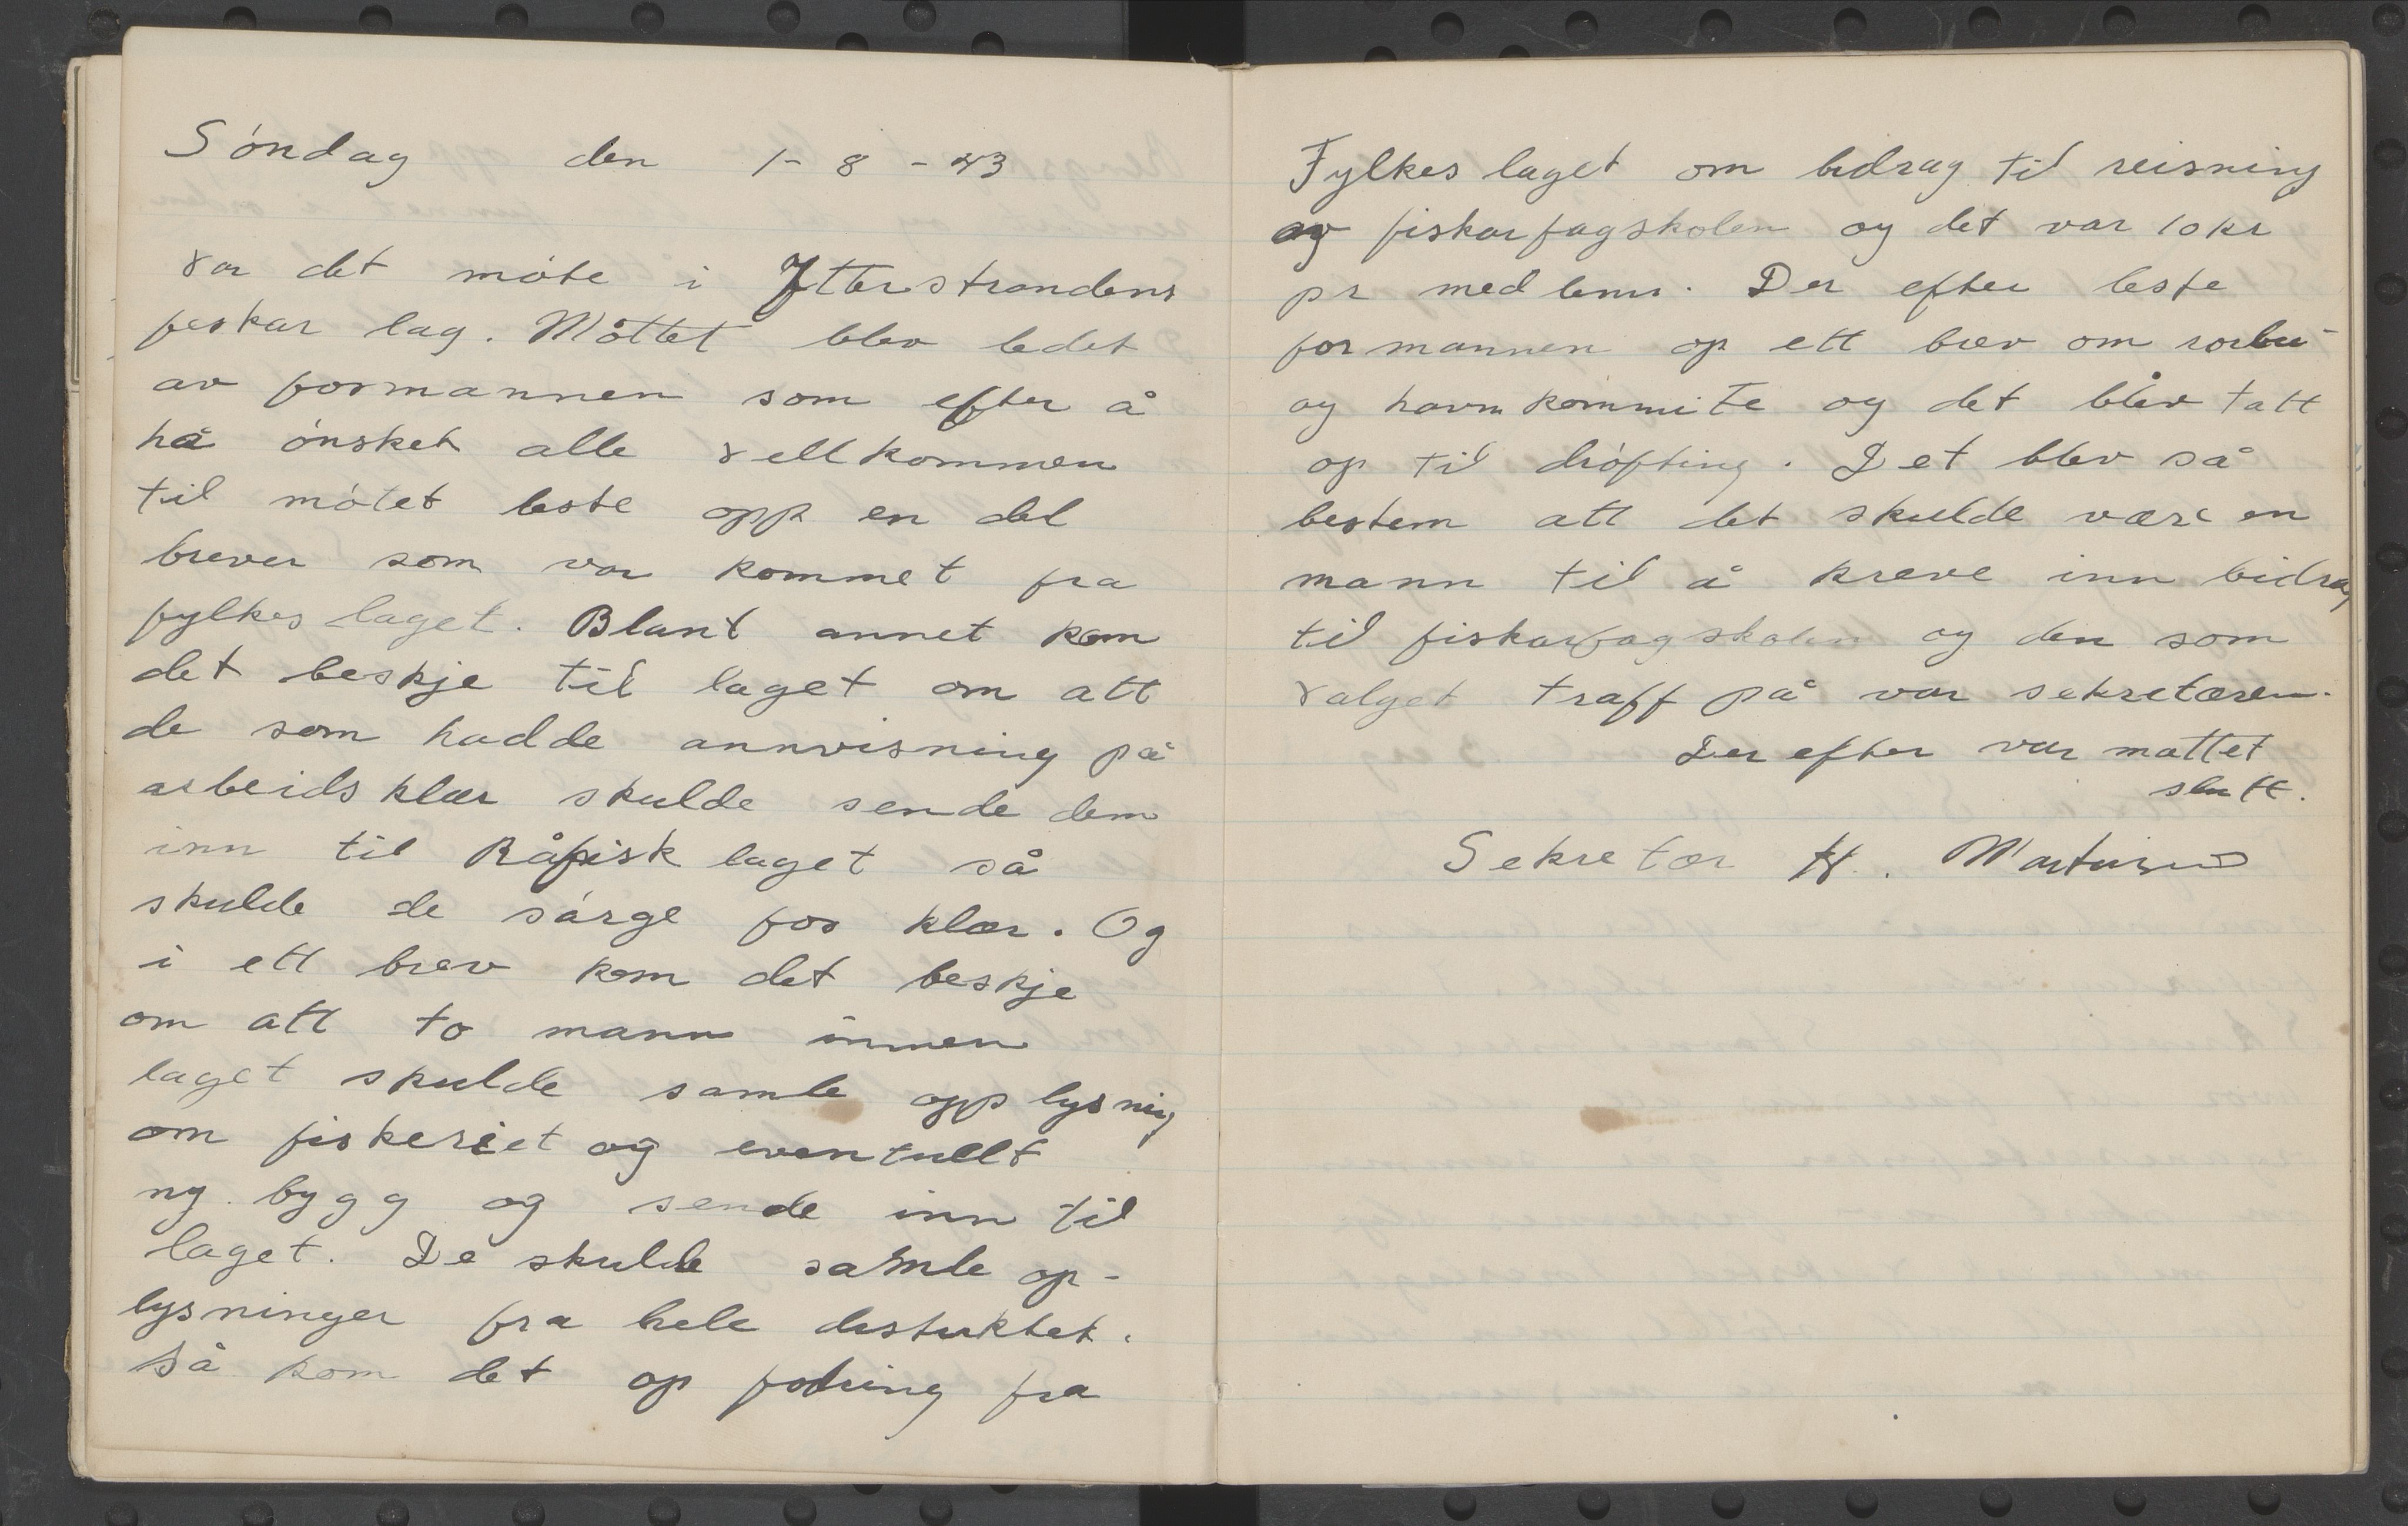 Söndag den 1-8-43
var det möte i Ytterstrandens
feskar lag. Möttet blev ledet
av formannen som efter å
ha önsket alle vellkommen
til mötet leste opp en del
brever som var kommet fra
fylkes laget. Blant annet kom
det beskje til laget om att
de som hadde annvisning på
arbeids klær skulde sende dem
inn til Råfisk laget så
skulde de sörge for klær. Og
i ett brev kom det beskje
om att to mann innen
laget skulde samle opplysning
om fiskeriet og eventuellt
ny bygg og sende inn til
laget. De skulde samle op-
lysninger fra hele destriktet.
Så kom det op fodring fra
Fylkes laget om bidrag til reisning
av fiskarfagskolen og det var 10 kr
pr medlem. Der efter leste
formannen op ett brev om rorbu-
og havn kommite og det blev tatt
op til dröfting. Det blev så
bestem att det skulde være en
mann til å kreve inn bidrag
til fiskarfagskolen og den som
valget traff på var sekretæren.
Der efter var mattet
slutt.
Sekretær H. Martinsen